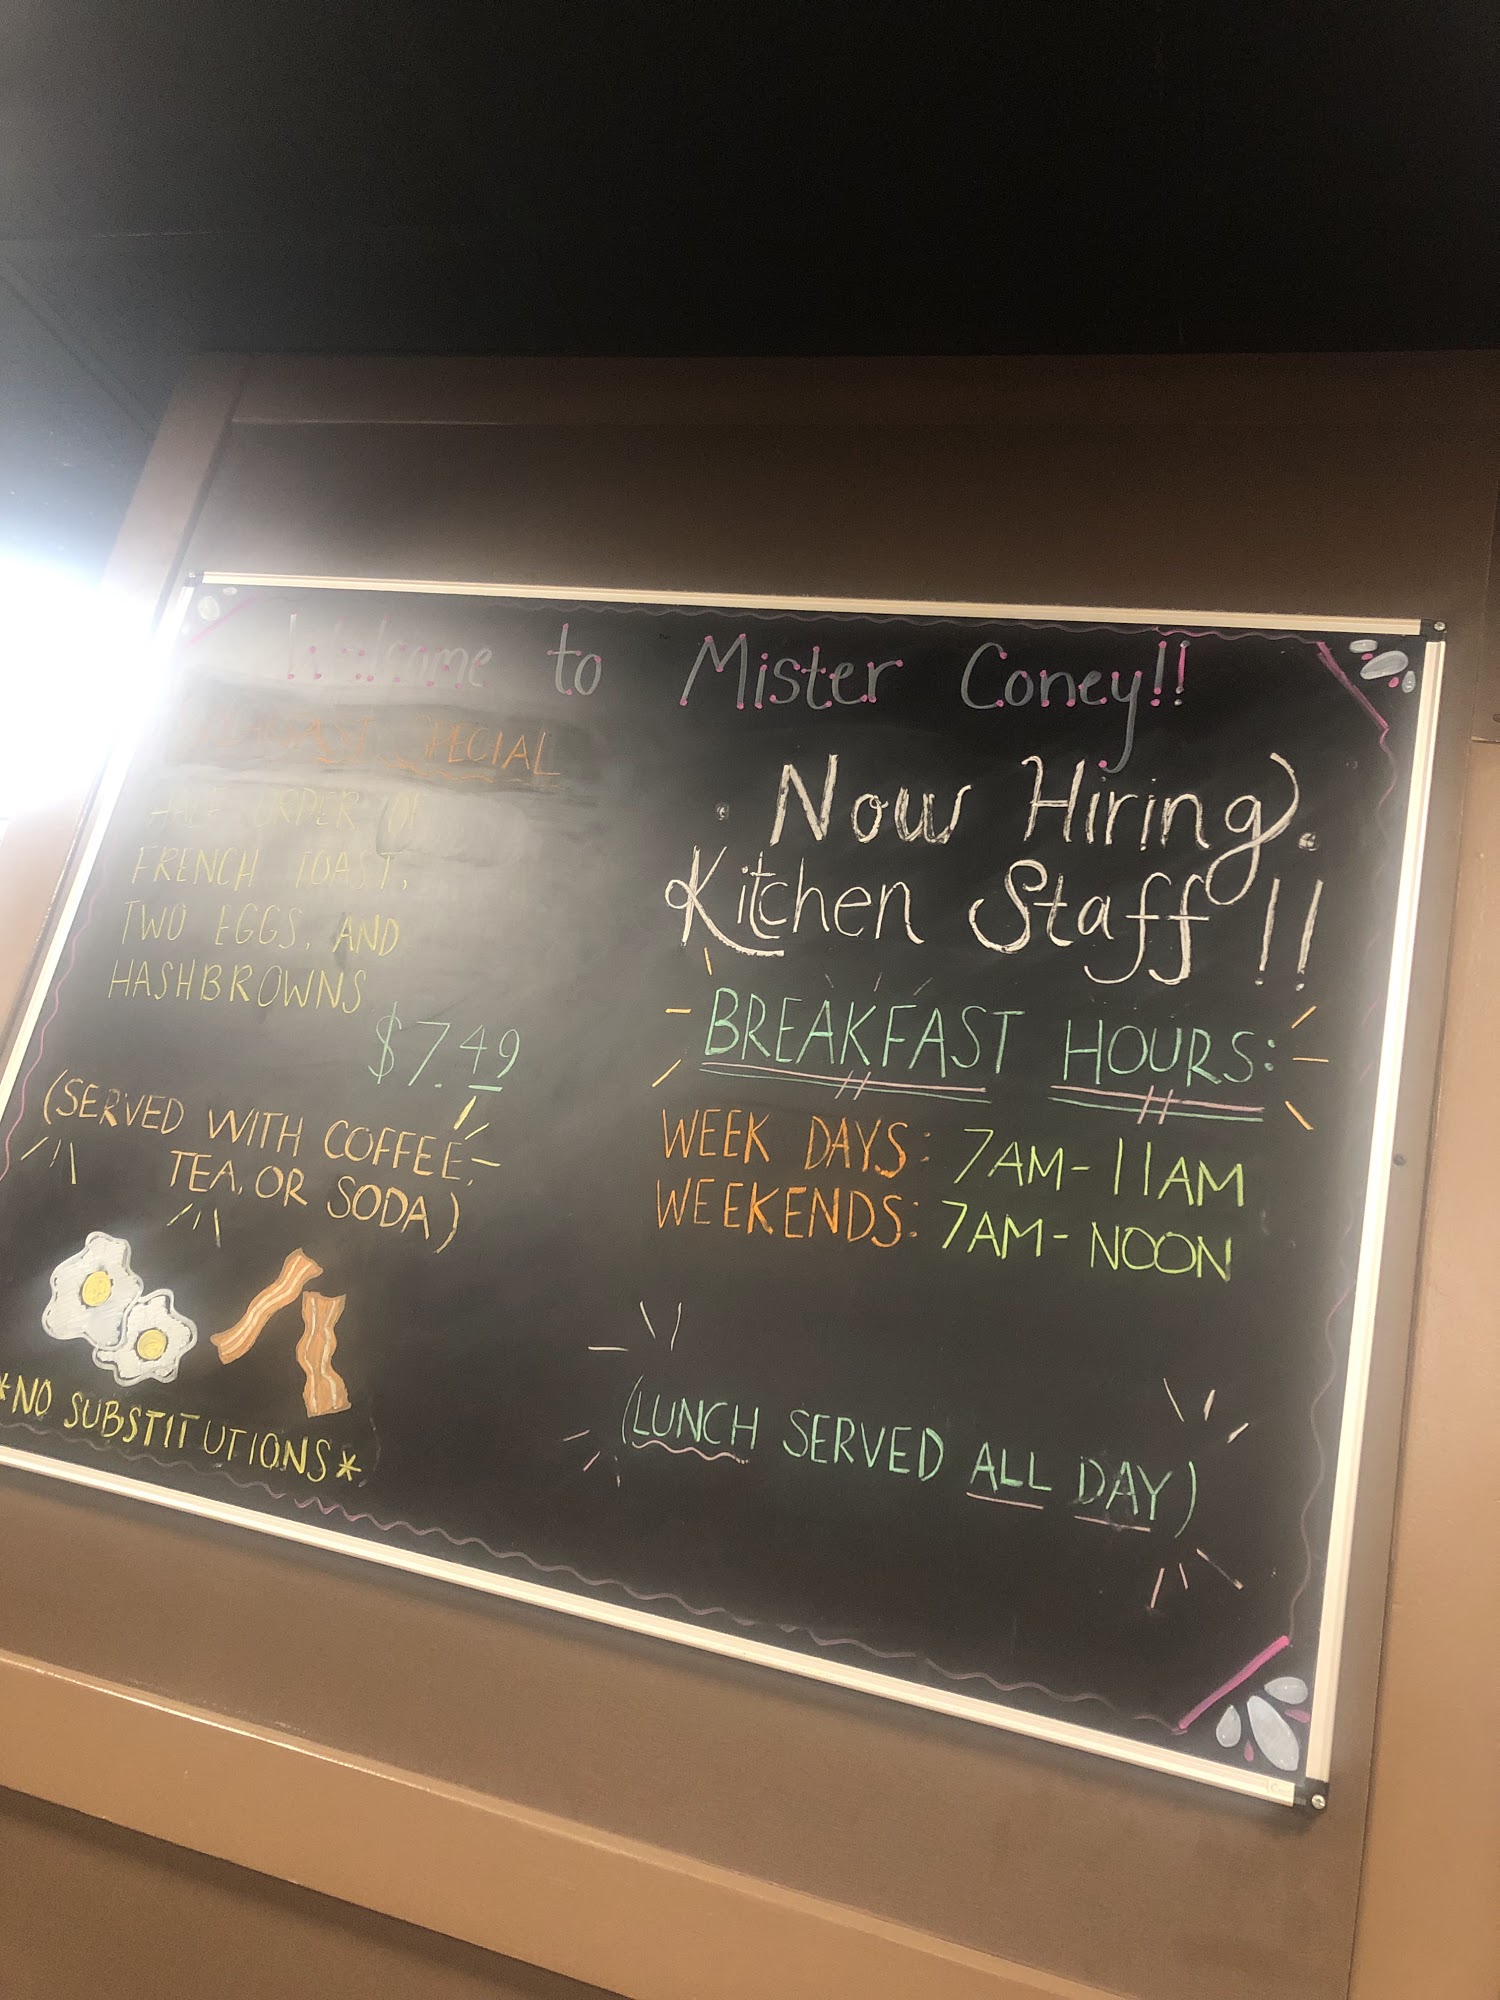 Welcome to Mister Coney!!
BREAKFAST SPECIAL
HALF ORDER OF
FRENCH TOAST,
TWO EGGS, AND
HASHBROWNS
$7.49
(SERVED WITH COFFEE,
TEA, OR SODA)
*NO SUBSTITUTIONS*
Now Hiring
Kitchen Staff!!
BREAKFAST HOURS:
WEEK DAYS: 7AM-11AM
WEEKENDS: 7AM-NOON
(LUNCH SERVED ALL DAY)